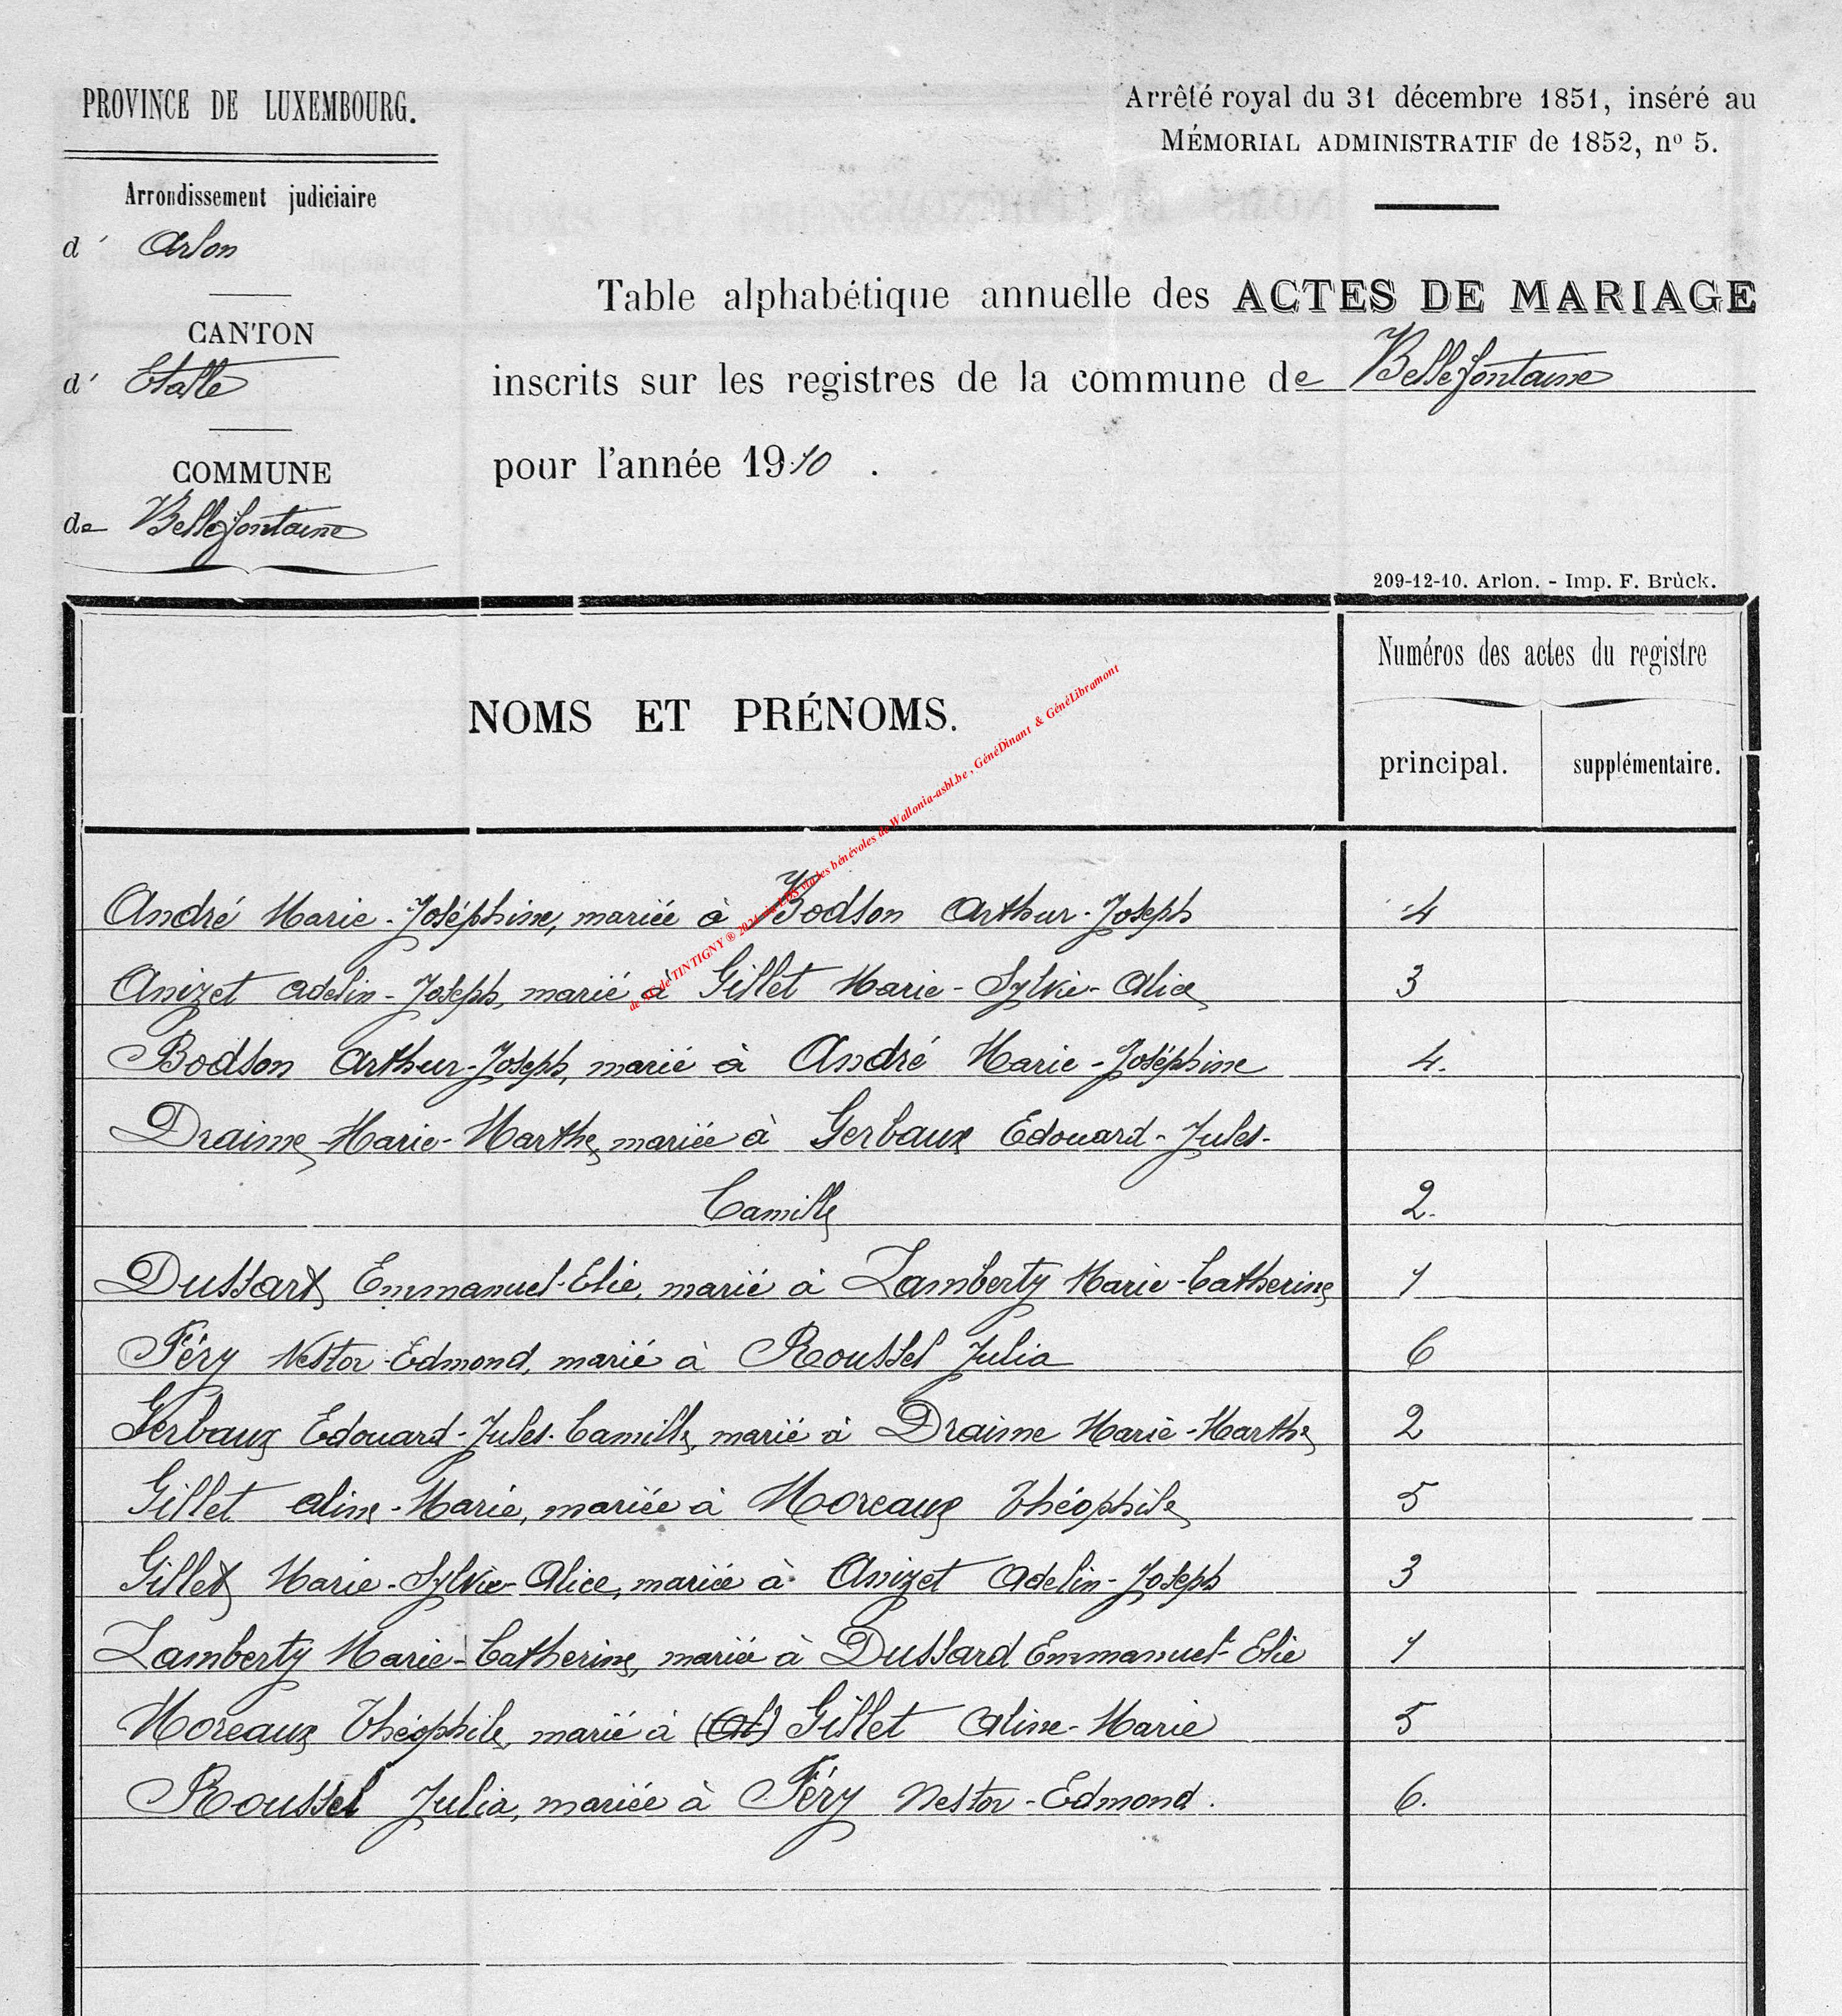 PROVINCE DE LUXEMBOURG.
Arrondissement judiciaire
d' Arlon
CANTON
d' Etalle
COMMUNE
de Bellefontaine
Arrêté royal du 31 décembre 1851, inséré au
MÉMORIAL ADMINISTRATIF de 1852, nº 5.
Table alphabétique annuelle des ACTES DE MARIAGE
inscrits sur les registres de la commune de Bellefontaine
pour l'année 1910 .
209-12-10. Arlon. - Imp. F. Brück.
NOMS ET PRÉNOMS.
Numéros des actes du registre
principal. supplémentaire.
de TINTIGNY ® 2024 via les bénévoles de Wallonia-asbl.be , GénéDinant & GénéLibramont
André Marie-Joséphine, mariée à Bodson Arthur-Joseph 4
Anizet Adelin-Joseph, marié à Gillet Marie-Sylvie-Alice 3
Bodson Arthur-Joseph, marié à André Marie-Joséphine 4.
Draime Marie-Marthe, mariée à Gerbaux Edouard-Jules-
Camille 2.
Dussart Emmanuel-Elie, marié à Lamberty Marie-Catherine 1
Féry Nestor-Edmond, marié à Roussel Julia 6
Gerbaux Edouard-Jules-Camille, marié à Draime Marie-Marthe 2
Gillet Aline-Marie, mariée à Moreaux Théophile 5
Gillet Marie-Sylvie-Alice, mariée à Anizet Adelin-Joseph 3
Lamberty Marie-Catherine, mariée à Dussard Emmanuel-Elie 1
Moreaux Théophile, marié à (Al) Gillet Aline-Marie 5
Roussel Julia, mariée à Féry Nestor-Edmond. 6.